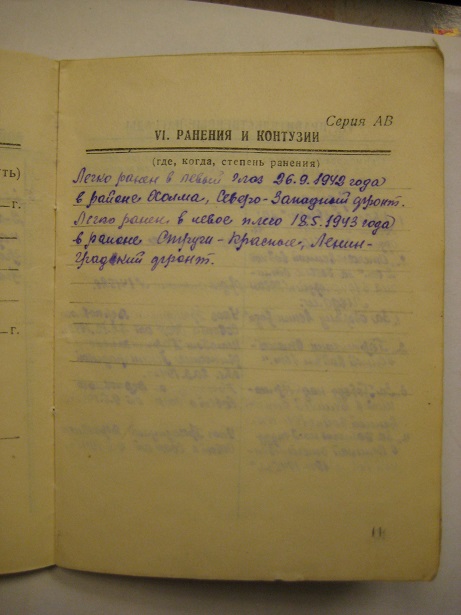 Серия АВ
VI. РАНЕНИЯ И КОНТУЗИИ
(где, когда, степень ранения)
Легко ранен в левый глаз 26.9.1942 года
в районе Холма, Северо-Западный фронт.
Легко ранен в левое плечо 18.5.1943 года
в районе Струги-Красные, Ленин-
градский фронт.
ть)
г.
г.
11